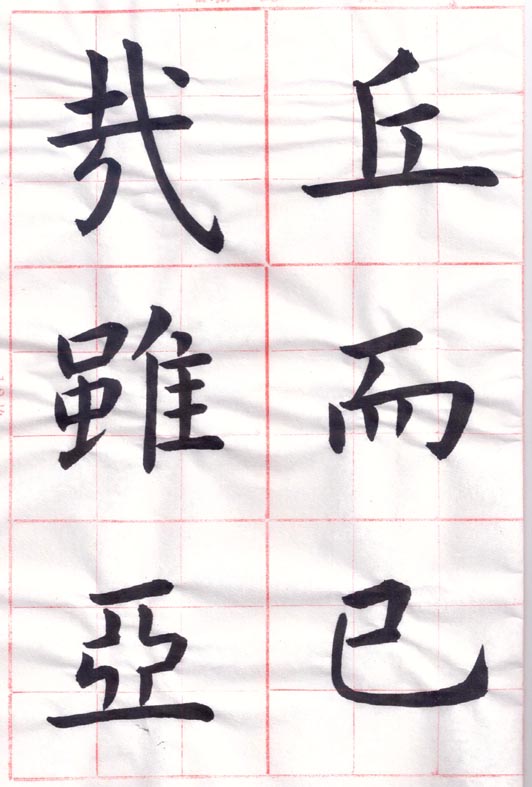 丘而已
哉雖亞